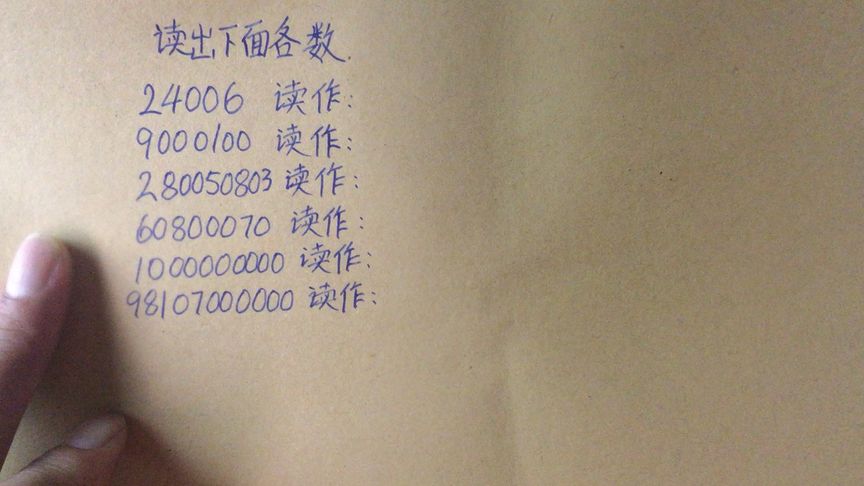 读出下面各数.
24006 读作:
9000100 读作:
280050803 读作:
60800070 读作:
1000000000 读作:
98107000000 读作: